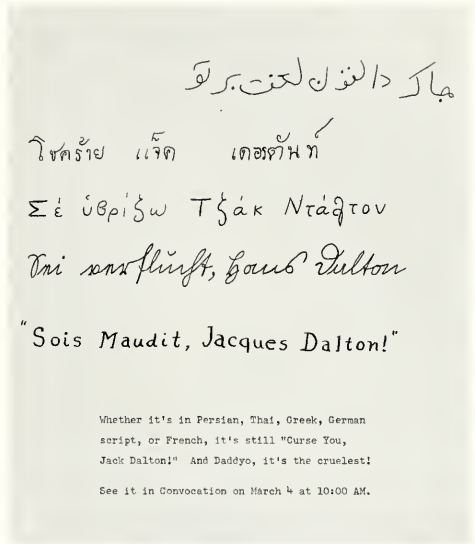 جاک دالتون لعنت بر تو
โชคร้าย แจ็ค เดอรตันท์
Σέ ὑβρίζω Τζάκ Ντάλτον
Sei verflucht, Hans Dalton
"Sois Maudit, Jacques Dalton!"
Whether it's in Persian, Thai, Greek, German
script, or French, it's still "Curse You,
Jack Dalton!" And Daddyo, it's the cruelest!
See it in Convocation on March 4 at 10:00 AM.